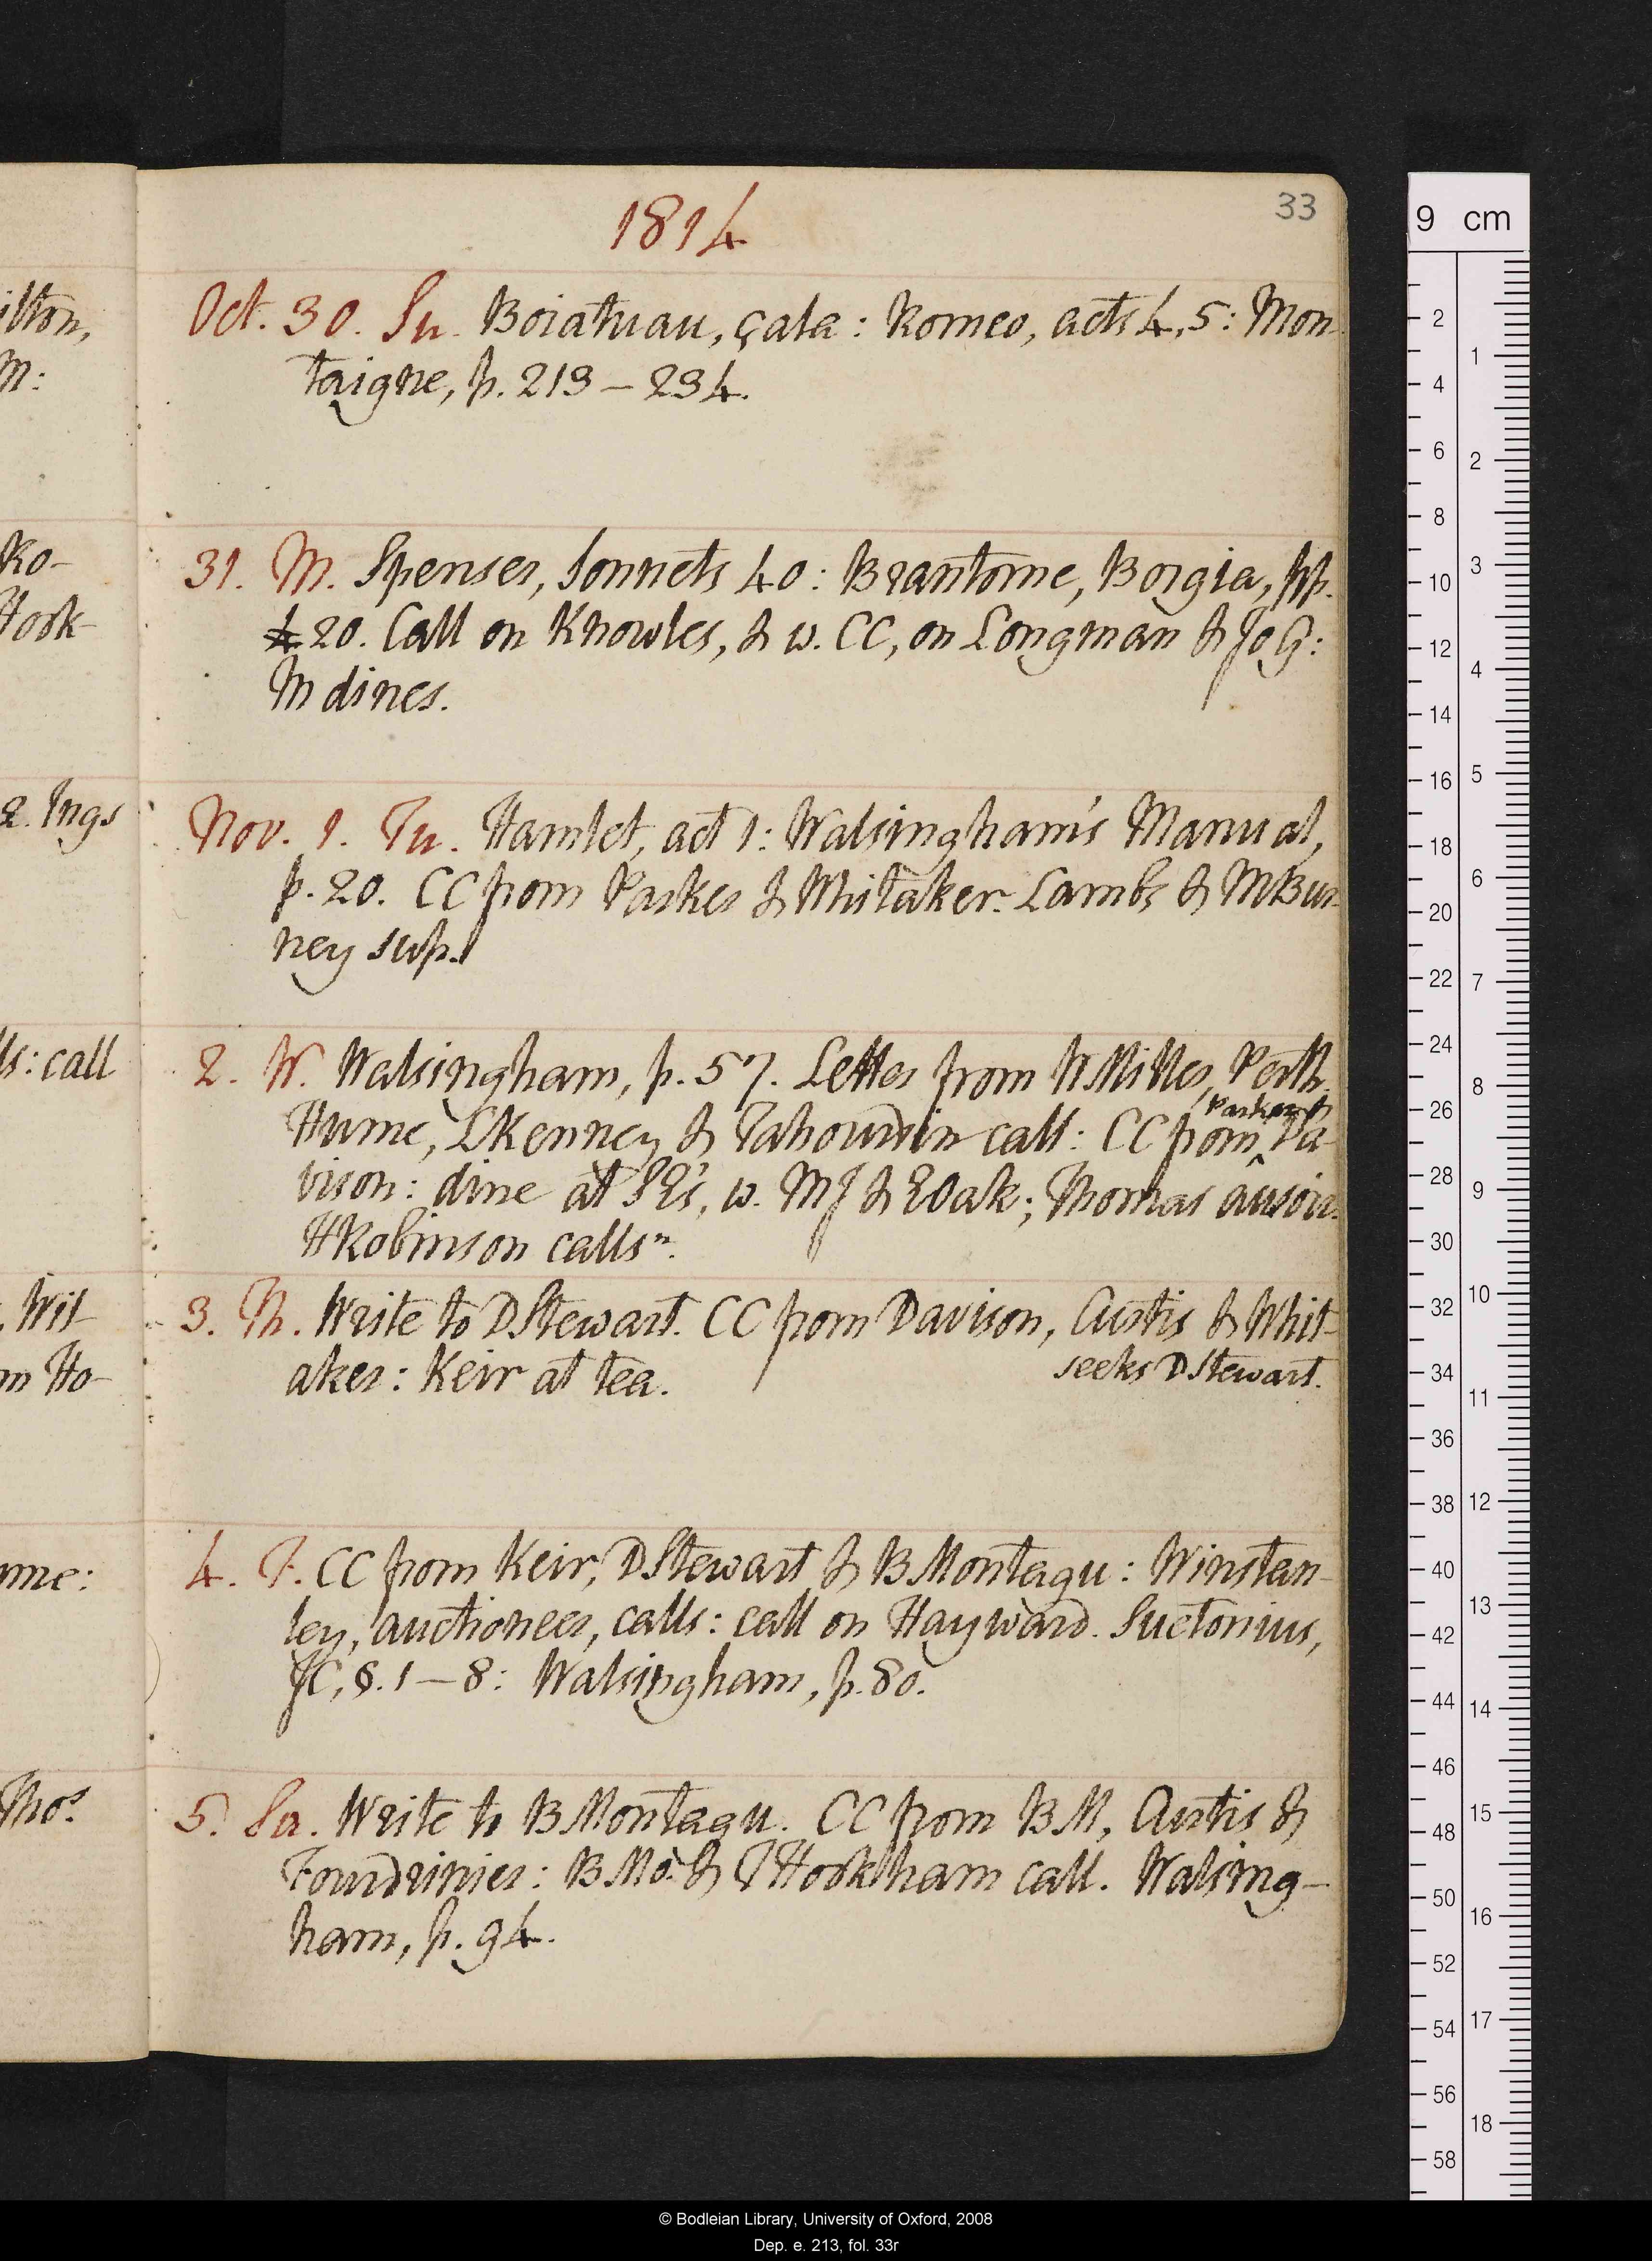 33
1814
Oct. 30. Su. Boiatuau, çala: Romeo, acts 4, 5: Mon-
taigne, p. 213 – 234.
31. M. Spenser, Sonnets 40: Brantome, Borgia, pp.
20. Call on Knowles, & w. CC, on Longman & JoG:
M dines.
Nov. 1. Tu. Hamlet, act 1: Walsingham's Manual,
p. 20. CC from Parkes & Whitaker. Lambs & MBur-
ney sup.
2. W. Walsingham, p. 57. Letter from W Miller, Perth.
Hume, LKenney & Tahourdin call: CC from Parker & Da-
vison: dine at PE's, w. MJ & EOak; Thomas au soir.
HRobinson calls n.
3. Th. Write to DStewart. CC from Davison, Curtis & Whit-
aker: Keir at tea. seeks DStewart.
4. F. CC from Keir, DStewart & BMontagu: Winstan-
ley, auctioneer, calls: call on Hayward. Suetonius,
JC, §. 1 – 8: Walsingham, p. 80.
5. Sa. Write to BMontagu. CC from BM, Curtis &
Fourdrinier: BMo. & THookham call. Walsing-
ham, p. 94.
ilton,
M:
Ro-
Hook-
2. Ings
lls: call
. Wil-
m Ho-
ume:
Thos.
9 cm
2
4
6
8
10
12
14
16
18
20
22
24
26
28
30
32
34
36
38
40
42
44
46
48
50
52
54
56
58
1
2
3
4
5
6
7
8
9
10
11
12
13
14
15
16
17
18
© Bodleian Library, University of Oxford, 2008
Dep. e. 213, fol. 33r